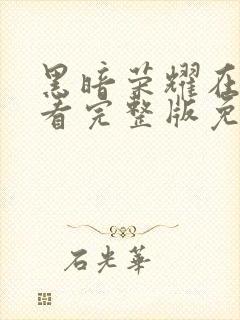 黑暗荣耀在
看完整版免
石光華